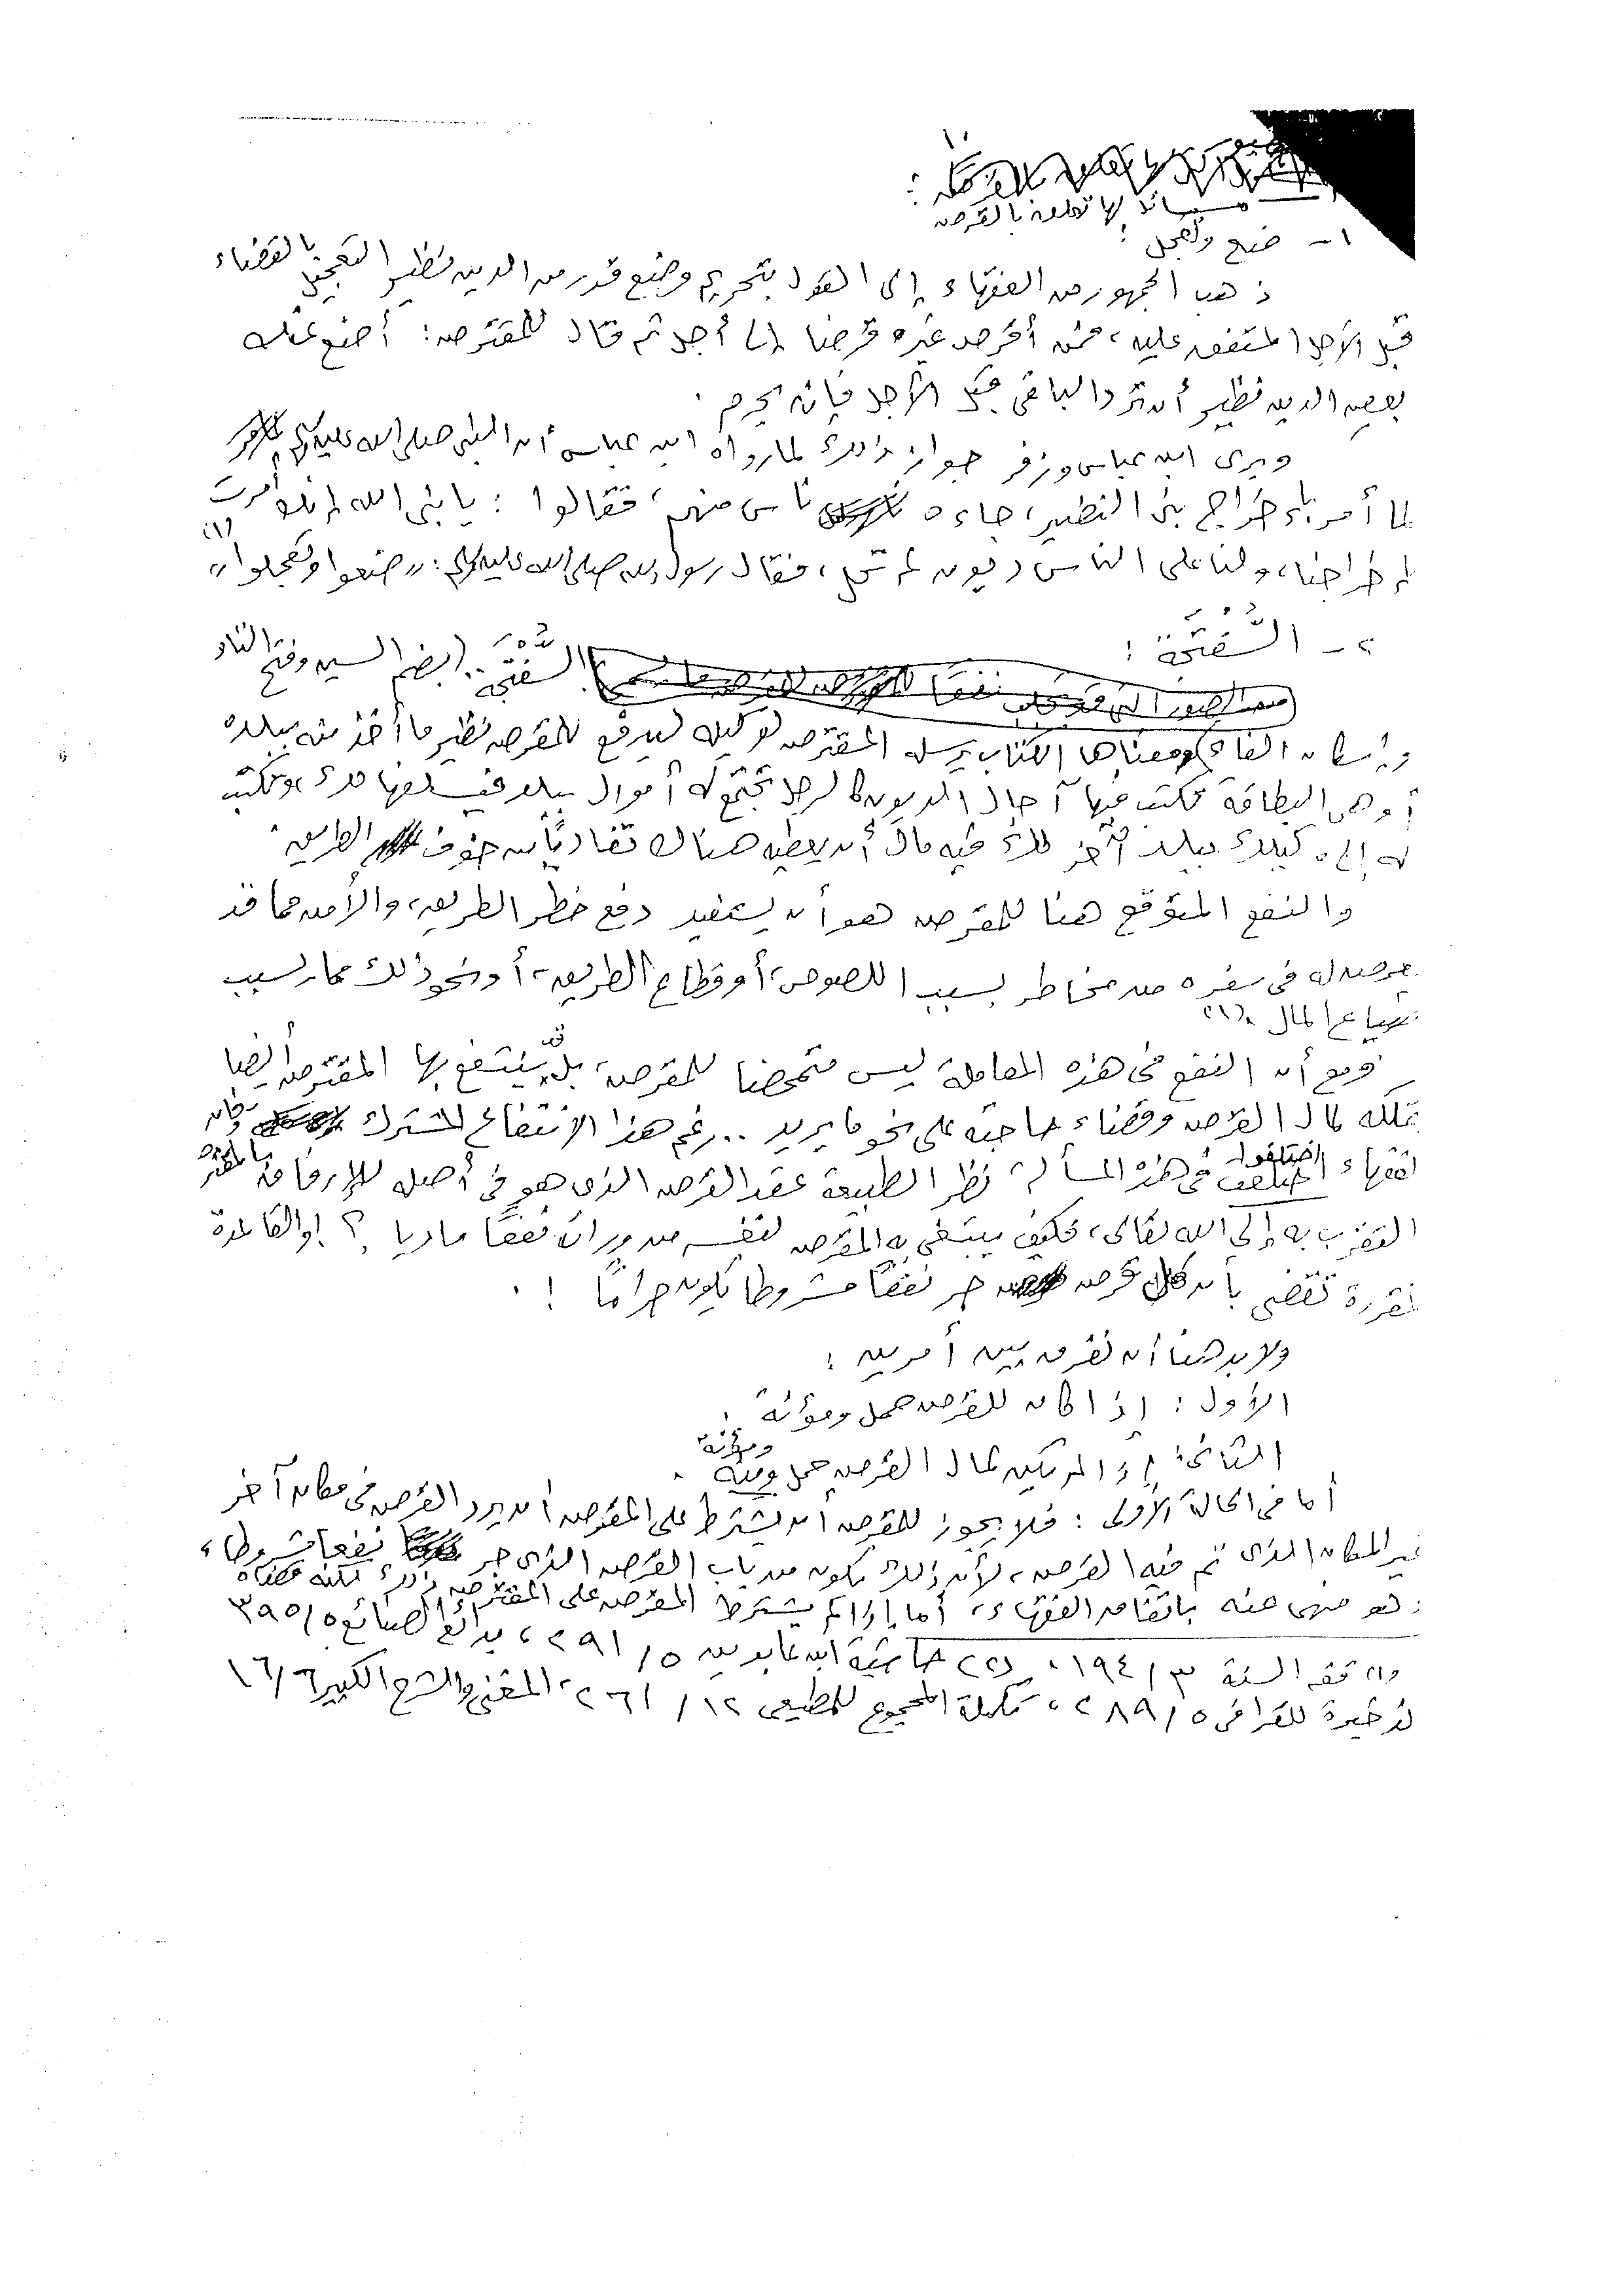 مسائل لها تعلق بالقرض
١- ضع وتعجل :
ذهب الجمهور من الفقهاء إلى القول بتحريم وضع قدر من الدين نظير التعجيل بالقضاء
قبل الأجل المتفق عليه، فمن أقرض غيره قرضا إلى أجل ثم قال للمقترض: أضع عنك
بعض الدين نظير أن ترد الباقى قبل الأجل فإنه يحرم .
ويرى ابن عباس وزفر جواز ذلك لما رواه ابن عباس أن النبى صلى الله عليه وسلم
لما أمر بإخراج بنى النضير، جاءه ناس منهم، فقالوا : يا نبى الله إنك أمرت
بإخراجنا، ولنا على الناس ديون لم تحل، فقال رسول الله صلى الله عليه وسلم: «ضعوا وتعجلوا» (١)
٢- السُّفْتَجَة :
السُّفْتَجَة .. بضم السين وفتح التاء
وإسكان الفاء ومعناها الكتاب يرسله المقترض لوكيله ليدفع للمقرض نظير ما أخذ منه ببلده
أو هى البطاقة تكتب فيها آجال الديون كالرجل تجتمع له أموال ببلد فيسلفها لك، وتكتب
له إلى وكيلك ببلد آخر لك فيه مال أن يعطيه هناك تفاديًا من خوف الطريق .
والنفع المتوقع هنا للمقرض هو أن يستفيد دفع خطر الطريق، والأمن مما قد
يعرض له فى سفره من مخاطر بسبب اللصوص، أو قطاع الطريق، أو نحو ذلك مما يسبب
ضياع المال .(٢)
ومع أن النفع فى هذه المعاملة ليس متمحضا للمقرض، بل قد ينتفع بها المقترض أيضا
بتملكه لمال القرض وقضاء حاجته على نحو ما يريد .. رغم هذا الانتفاع المشترك فإن
الفقهاء اختلفوا فى هذه المسألة نظرا لطبيعة عقد القرض الذى هو فى أصله للإرفاق بالمقترض
التقرب به إلى الله تعالى، فكيف يبتغى به المقرض لنفسه من ورائه نفعًا ماديا ؟! والقاعدة
المقررة تقضى بأن كل قرض جر نفعًا مشروطا يكون حرامًا ! .
ولا بد هنا أن نفرق بين أمرين :
الأول : إذا كان للقرض حمل ومؤنة .
الثانى : إذا لم يكن لمال القرض حمل ومؤنة .
أما فى الحالة الأولى : فلا يجوز للمقرض أن يشترط على المقترض أن يرد القرض فى مكان آخر
غير المكان الذى تم فيه القرض، لأن ذلك يكون من باب القرض الذى جر نفعا مشروطا،
وهو منهى عنه باتفاق الفقهاء، أما إذا لم يشترط المقرض على المقترض ذلك لكنه قضاه
(١) فقه السنة ٣/١٩٤ . (٢) حاشية ابن عابدين ٥/٢٩١، بدائع الصنائع ٥/٣٩٥
الذخيرة للقرافى ٥/٢٨٩، تكملة المجموع للمطيعى ١٢/٢٦١، المغنى والشرح الكبير ٦/١٦